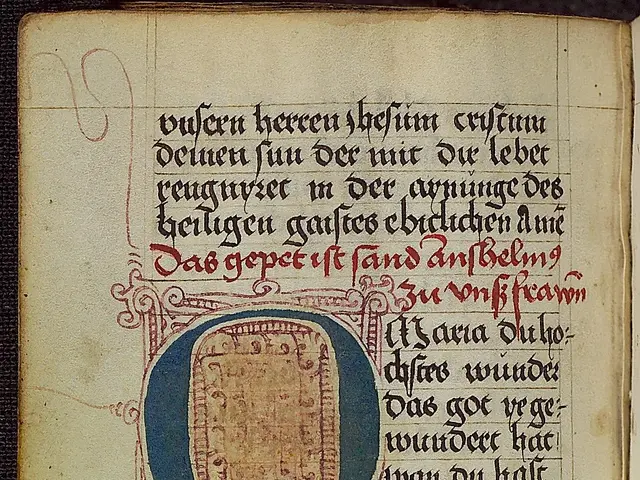 vnsern herren Jhesum cristum
deinen sun der mit dir lebet
rengnyret in der aynunge des
heiligen gaistes ebiclichen Amē
Das gepet ist sand Anshelmꝰ
zu vnsß frawn̄
O Maria du ho-
chstes wunder
das got ye ge-
wundert hat
wan du hast